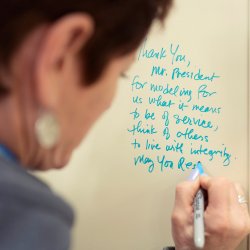 Thank You,
Mr. President
for modeling for
us what it means
to be of service,
think of others
to live with integrity.
May You Res